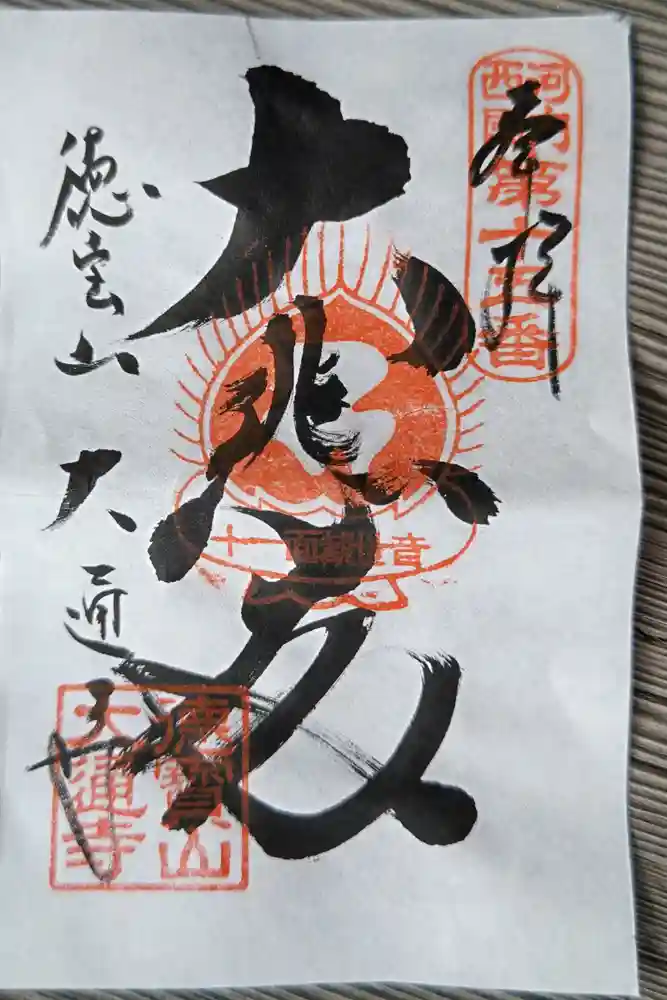 奉拝
河内
西國
第十五番
大悲
十一面観世音
徳宝山 大通寺
徳寶山
大通寺